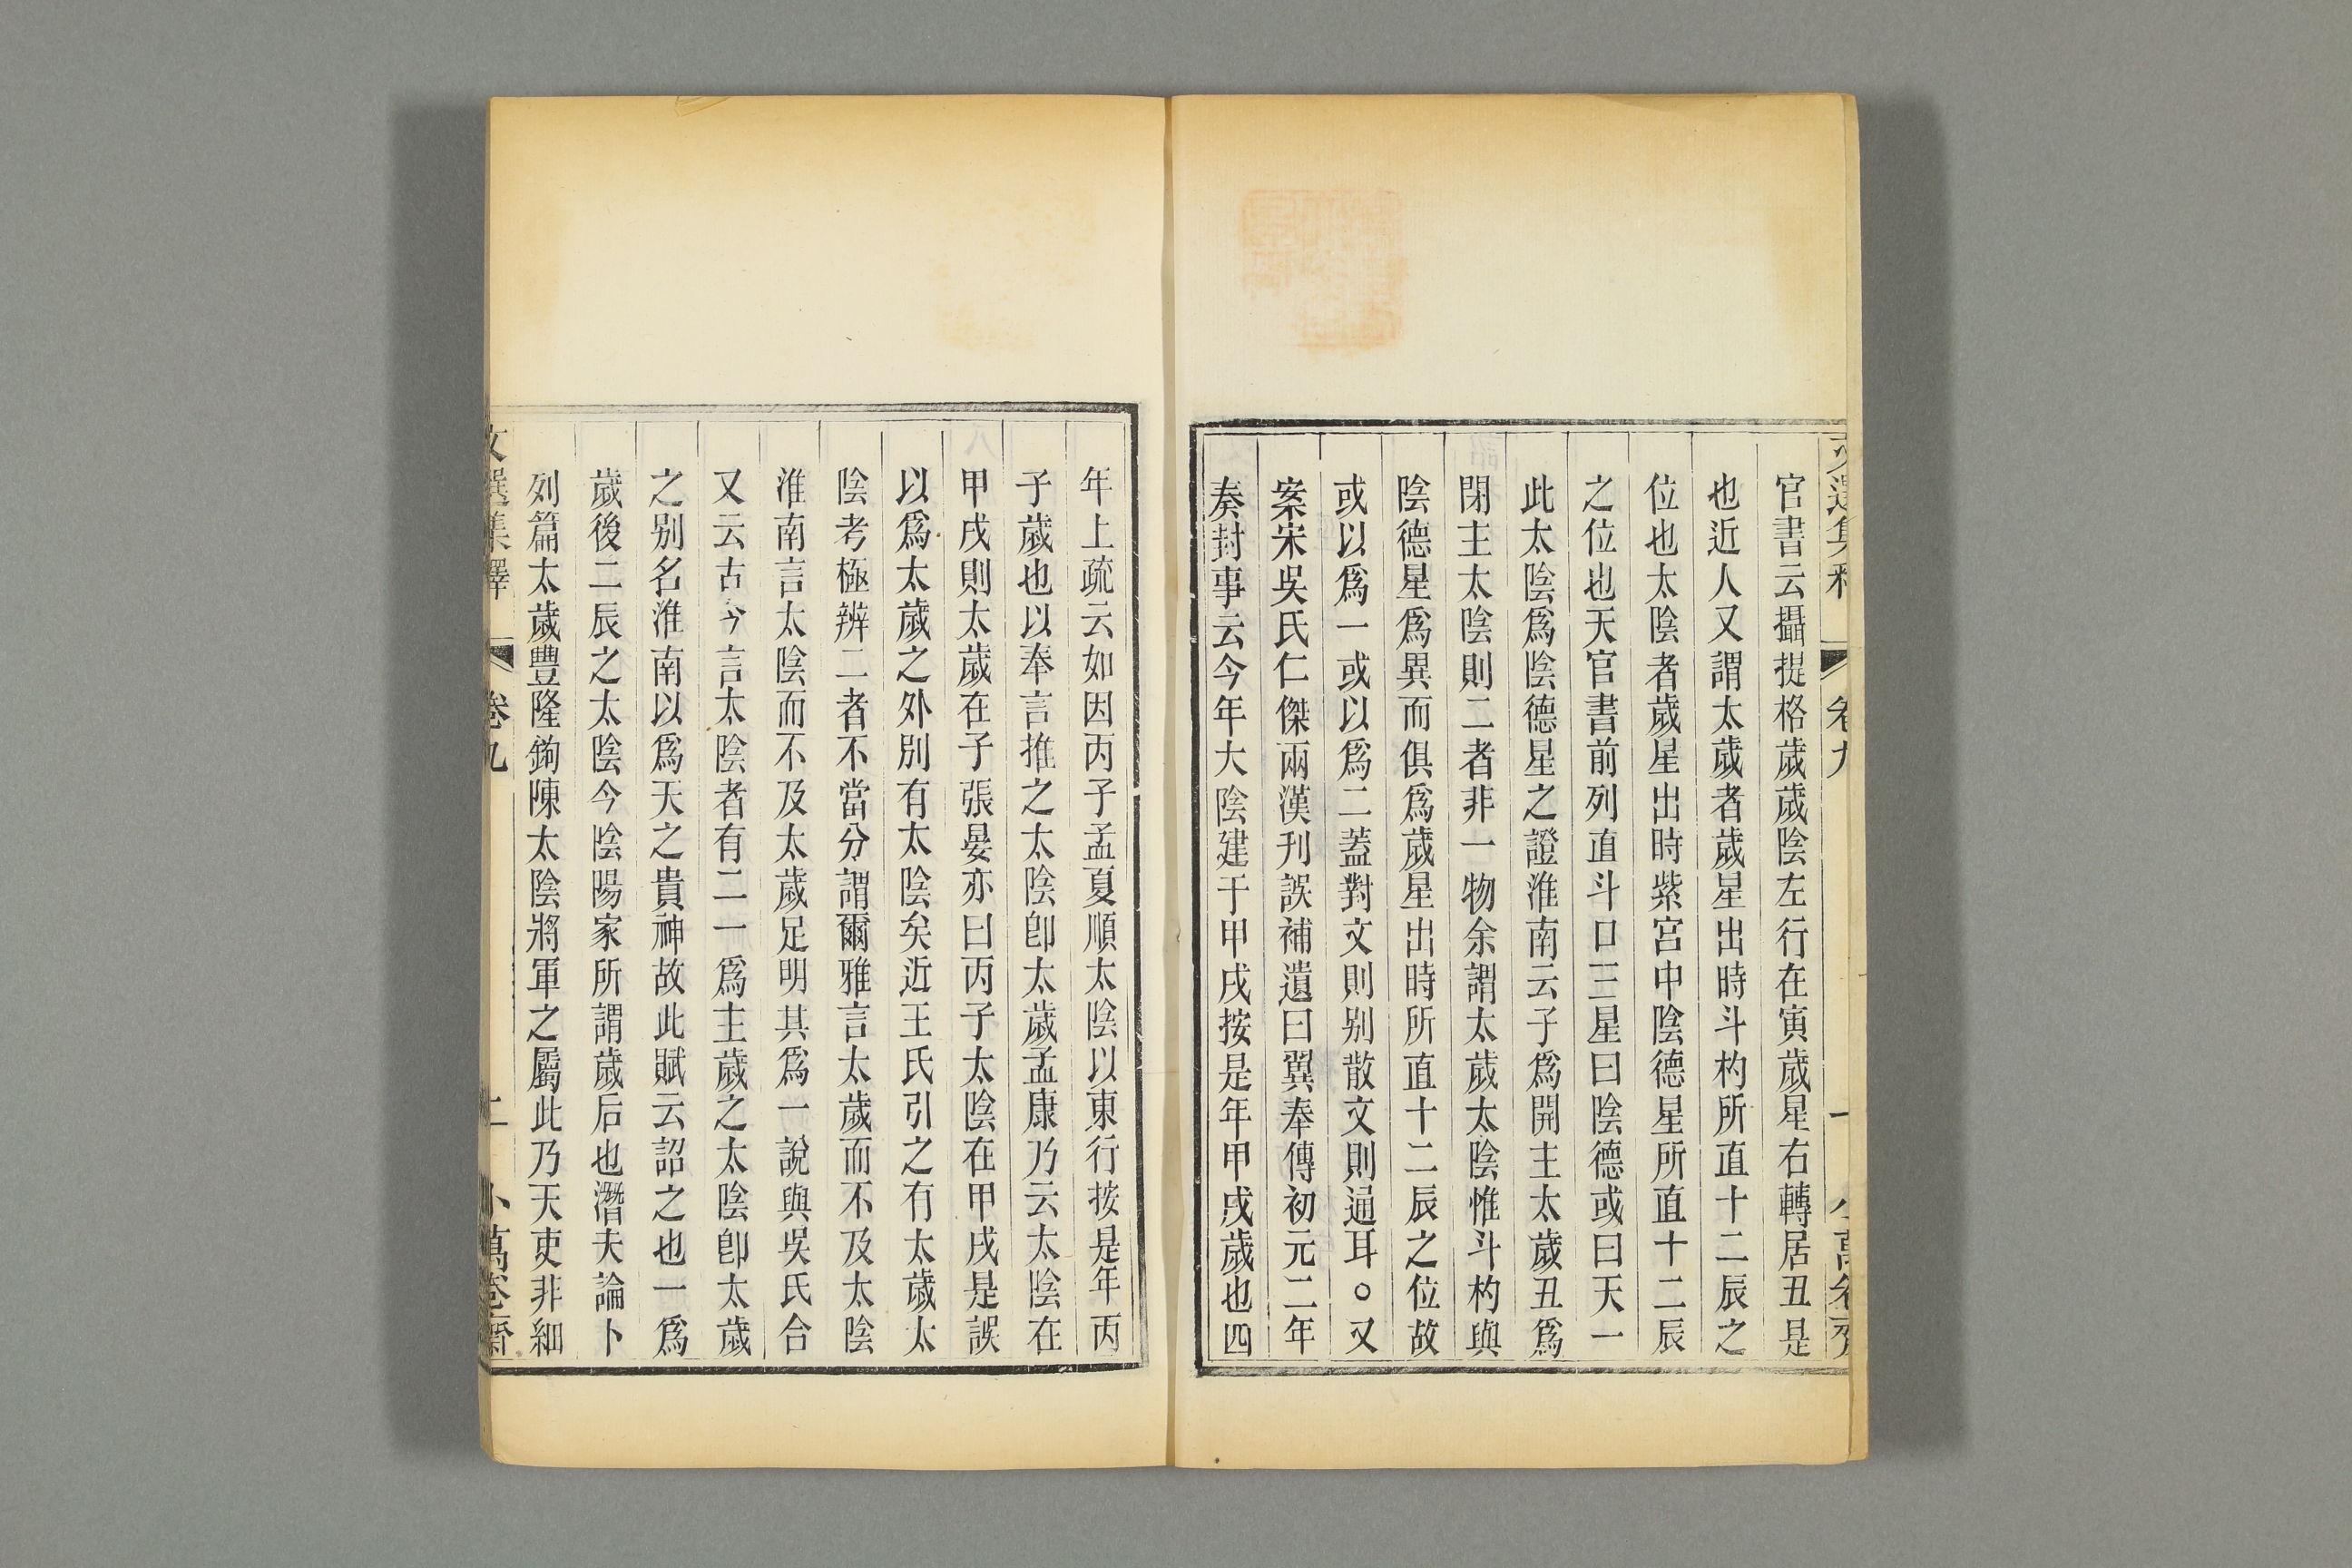 文選集釋 卷九 一 小萬卷齋
官書云攝提格歲歲陰左行在寅歲星右轉居丑是
也近人又謂太歲者歲星出時斗杓所直十二辰之
位也太陰者歲星出時紫宮中陰德星所直十二辰
之位也天官書前列直斗口三星曰陰德或曰天一
此太陰爲陰德星之證淮南云子爲開主太歲丑爲
閉主太陰則二者非一物余謂太歲太陰惟斗杓與
陰德星爲異而俱爲歲星出時所直十二辰之位故
或以爲一或以爲二蓋對文則别散文則通耳○又
案宋吳氏仁傑兩漢刊誤補遺曰翼奉傳初元二年
奏封事云今年大陰建于甲戌按是年甲戌歲也四
年上疏云如因丙子孟夏順太陰以東行按是年丙
子歲也以奉言推之太陰卽太歲孟康乃云太陰在
甲戌則太歲在子張晏亦曰丙子太陰在甲戌是誤
以爲太歲之外别有太陰矣近王氏引之有太歲太
陰考極辨二者不當分謂爾雅言太歲而不及太陰
淮南言太陰而不及太歲足明其爲一說與吳氏合
又云古今言太陰者有二一爲主歲之太陰卽太歲
之别名淮南以爲天之貴神故此賦云詔之也一爲
歲後二辰之太陰今陰陽家所謂歲后也潛夫論卜
列篇太歲豐隆鉤陳太陰將軍之屬此乃天吏非細
文選集釋 卷九 二 小萬卷齋